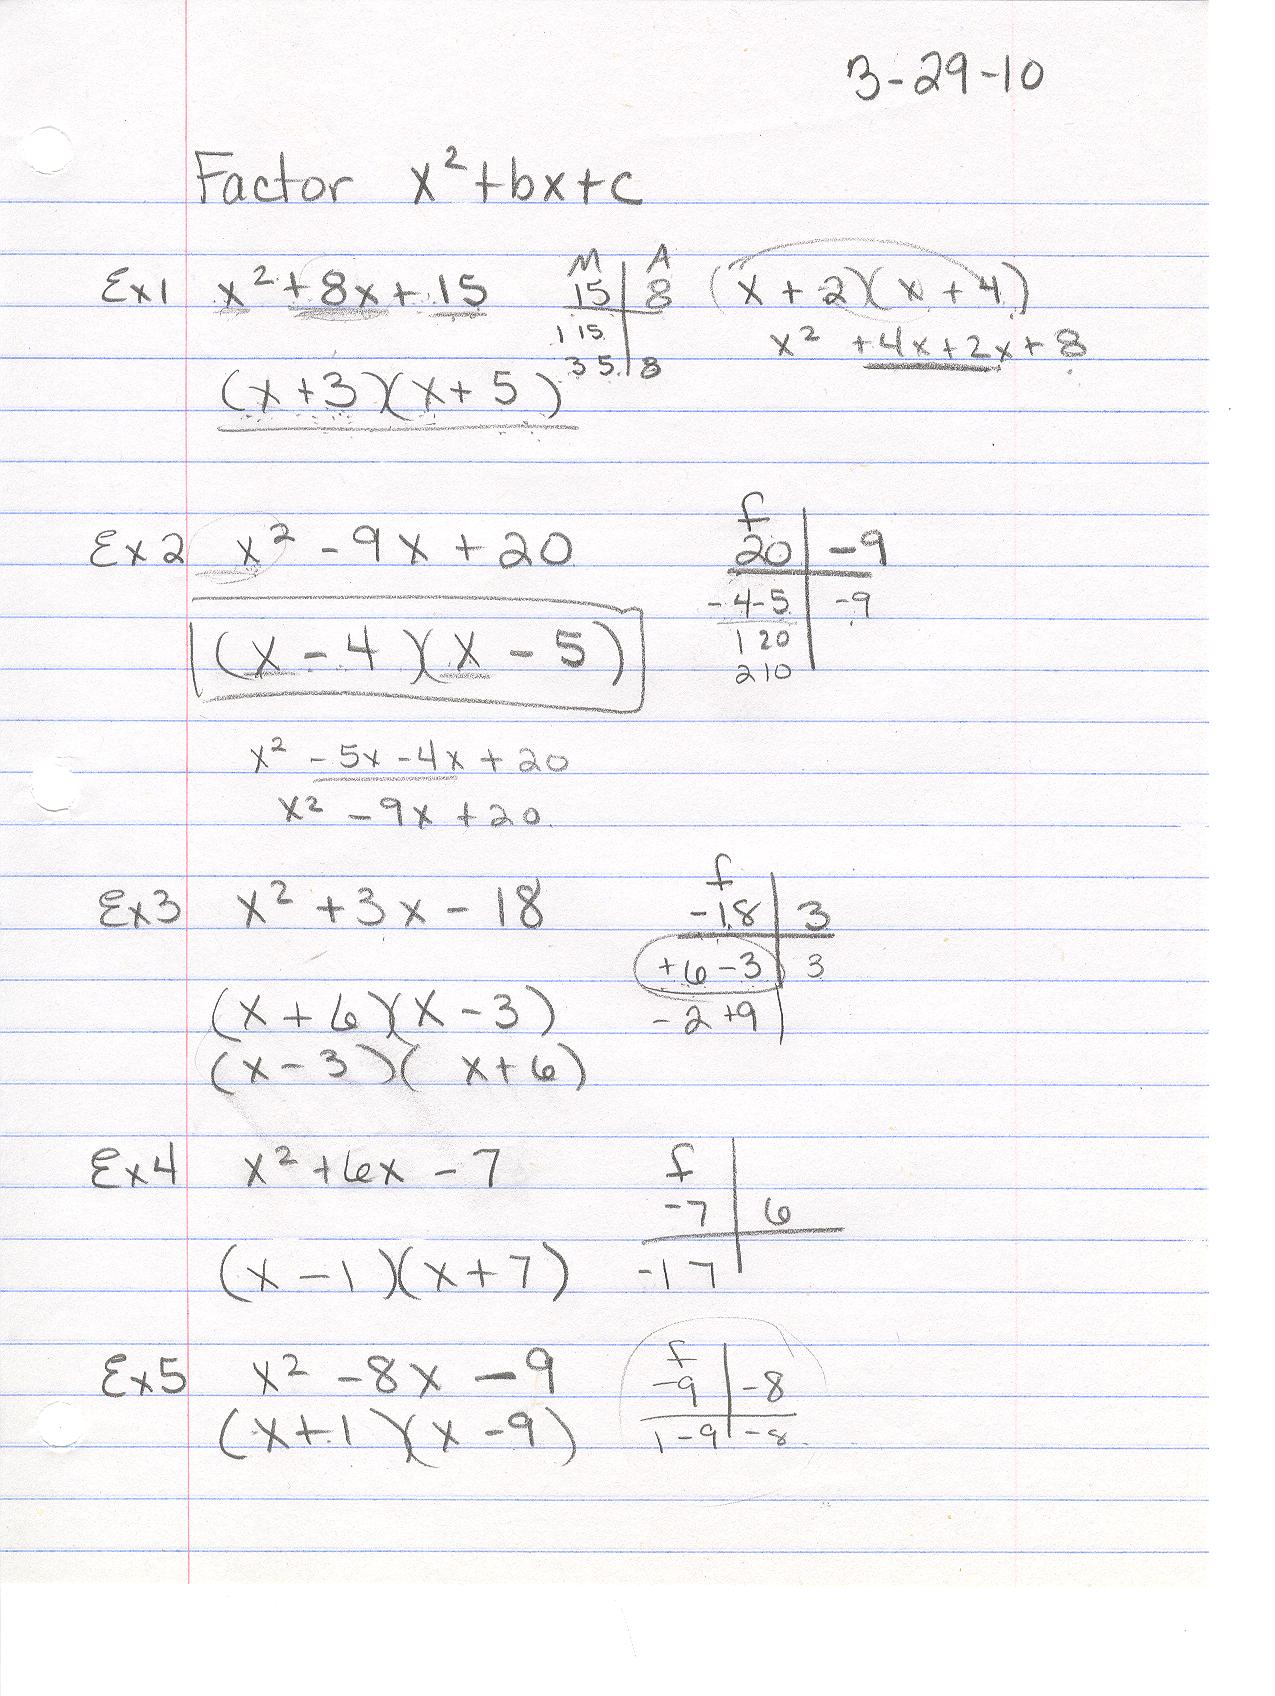 3-29-10
Factor x²+bx+c
Ex1 x²+8x+15
M | A
15 | 8
1 15 |
3 5 | 8
(x+2)(x+4)
x² +4x+2x+8
(x+3)(x+5)
Ex2 x² -9x+20
f
20 | -9
-4-5 | -9
1 20
2 10
(x-4)(x-5)
x² -5x-4x+20
x² -9x+20
Ex3 x²+3x-18
f
-18 | 3
+6-3 | 3
-2+9
(x+6)(x-3)
(x-3)(x+6)
Ex4 x²+6x-7
f
-7 | 6
-1 7
(x-1)(x+7)
Ex5 x²-8x-9
f
-9 | -8
1-9 | -8
(x+1)(x-9)